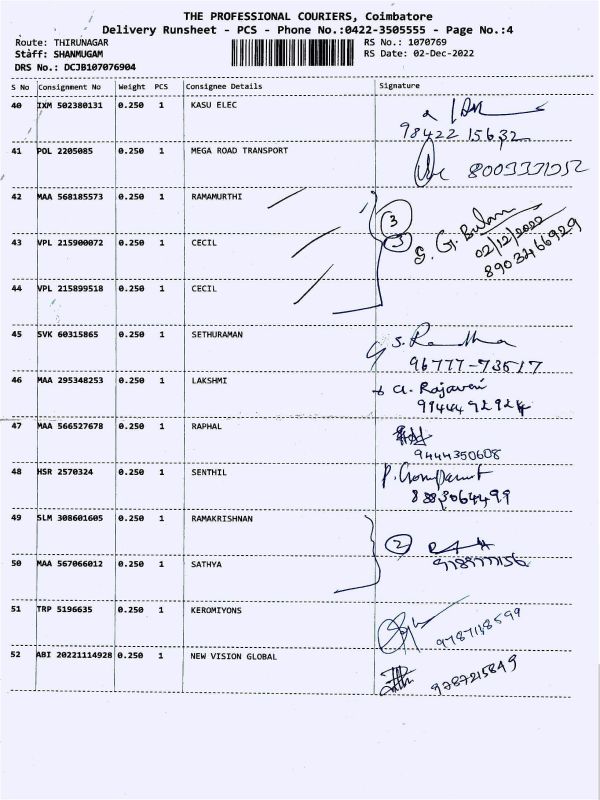 THE PROFESSIONAL COURIERS, Coimbatore
Delivery Runsheet - PCS - Phone No.:0422-3505555 - Page No.:4
Route: THIRUNAGAR RS No.: 1070769
Staff: SHANMUGAM RS Date: 02-Dec-2022
DRS No.: DCJB107076904
S No Consignment No Weight PCS Consignee Details Signature
40 IXM 502380131 0.250 1 KASU ELEC
98422 15632
41 POL 2205085 0.250 1 MEGA ROAD TRANSPORT
42 MAA 568185573 0.250 1 RAMAMURTHI
3
43 VPL 215900072 0.250 1 CECIL
02/12/2022
8903466929
44 VPL 215899518 0.250 1 CECIL
45 SVK 60315865 0.250 1 SETHURAMAN
96777-73517
46 MAA 295348253 0.250 1 LAKSHMI
99444 92924
47 MAA 566527678 0.250 1 RAPHAL
9444350608
48 HSR 2570324 0.250 1 SENTHIL
8883064499
49 SLM 308601605 0.250 1 RAMAKRISHNAN
2
50 MAA 567066012 0.250 1 SATHYA
51 TRP 5196635 0.250 1 KEROMIYONS
9787118599
52 ABI 20221114928 0.250 1 NEW VISION GLOBAL
9787215849